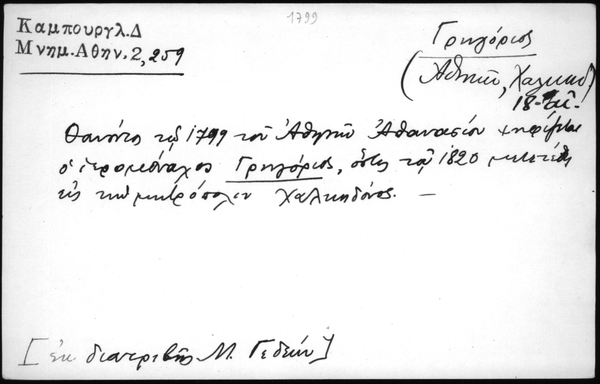 1799
Καμπουργλ.Δ
Μνημ.Αθην.2,259
Γρηγόριος
(Ἀθηνῶν, Χαλκηδ)
18-
Θανόντος τῷ 1799 τοῦ Ἀθηνῶν Ἀθανασίου ψηφίζεται
ὁ ἱερομόναχος Γρηγόριος, ὅστις τῷ 1820 μετετέθη
εἰς τὴν μητρόπολιν Χαλκηδόνος. —
[ἐκ διατριβῆς Μ. Γεδεών]